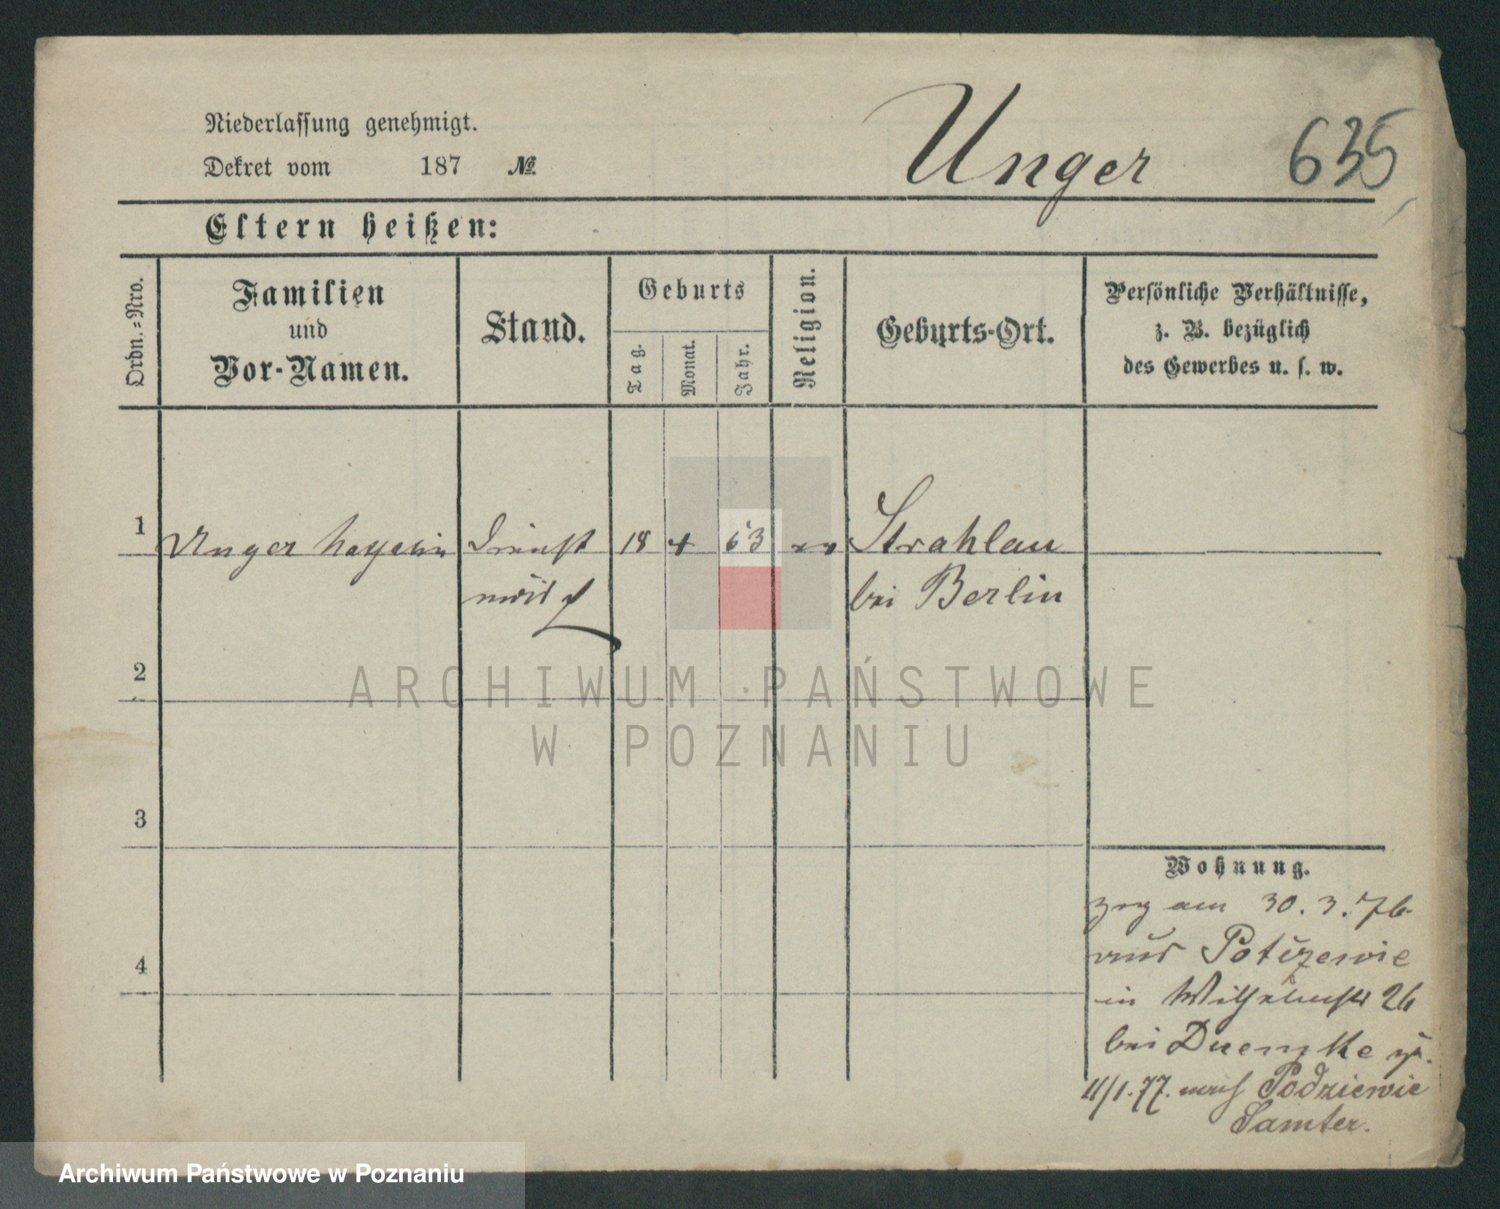 Niederlassung genehmigt.
Dekret vom 187 №
Unger
635
Eltern heißen:
Ordn.=Nro.
Familien
und
Vor-Namen.
Stand.
Geburts
Tag.
Monat.
Jahr.
Religion.
Geburts-Ort.
Persönliche Verhältnisse,
z. B. bezüglich
des Gewerbes u. s. w.
1 Unger Dienst 18 4 63 Strahlau
bei Berlin
2
3
4
Wohnung.
zog am 30.3.76
aus
in Wilhelmstr 26
bei
11/1.77. nach Podrziewie
Samter.
ARCHIWUM PAŃSTWOWE
W POZNANIU
Archiwum Państwowe w Poznaniu